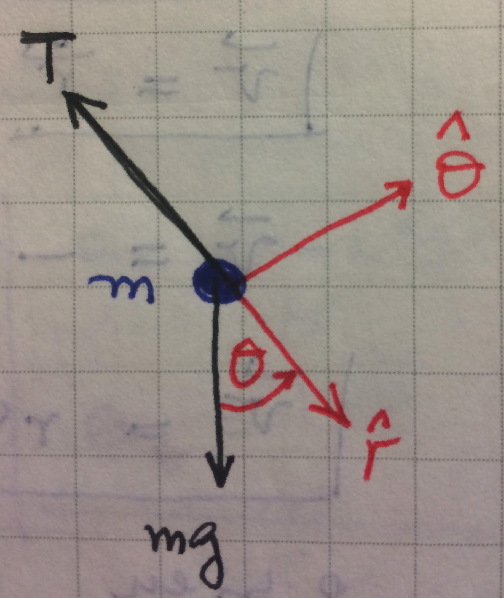 T
θ̂
m
θ
r̂
mg